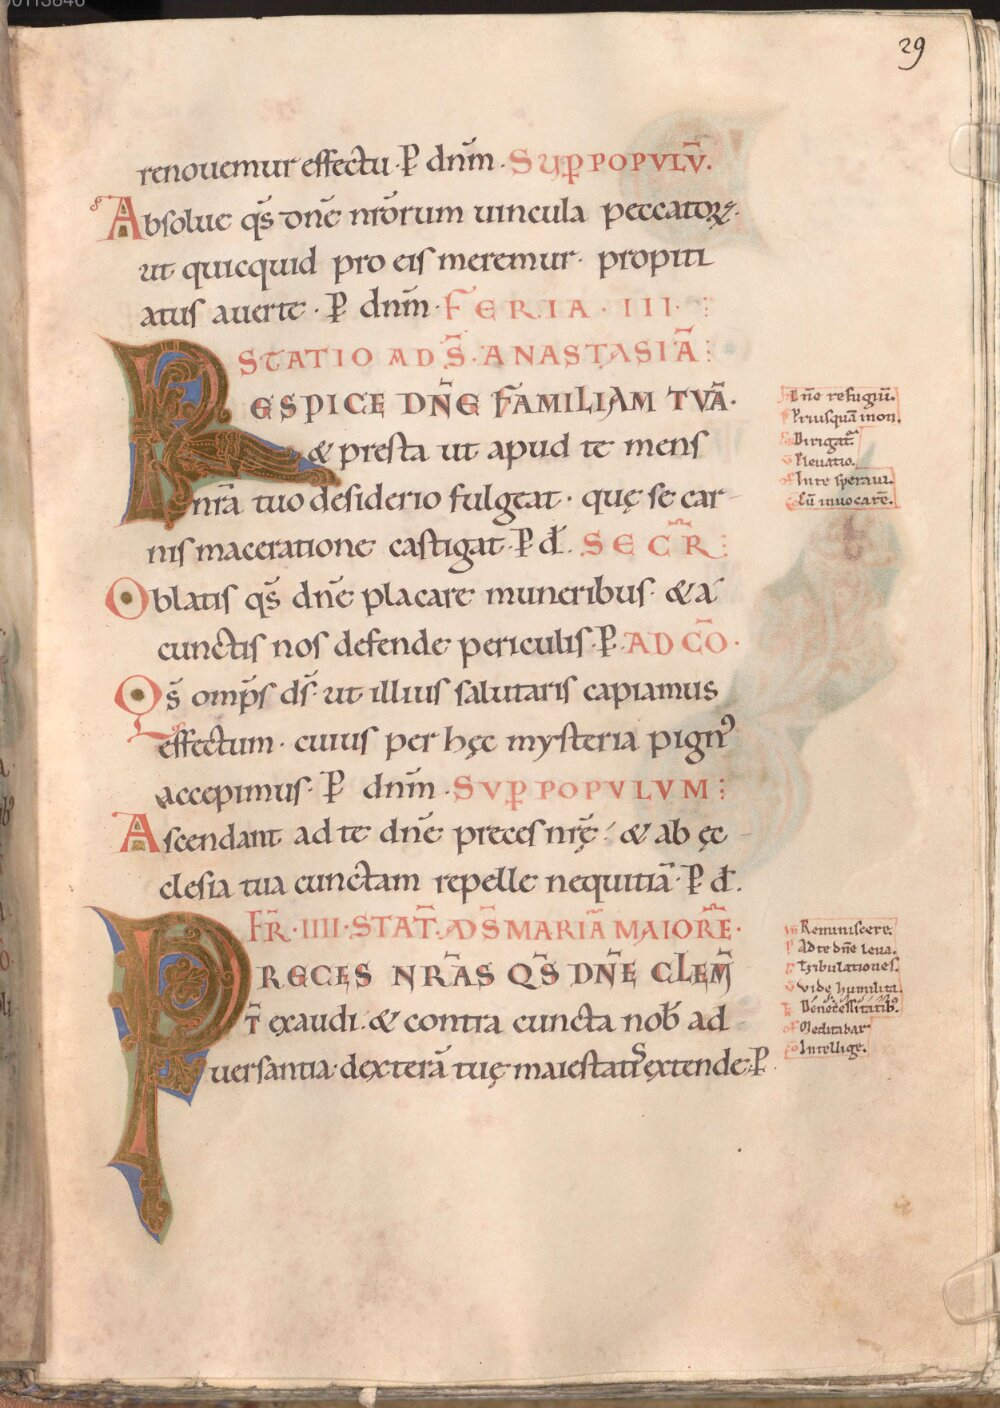 29
renouemur effectu · P dnm̄ · SUP POPVLV̄.
Absolue qs̄ dnē nrōrum uincula peccatoꝝ·
ut quicquid pro eis meremur · propiti
atus auerte · P dnm̄ · FERIA · III ·
STATIO AD S̄ · ANASTASIĀ :
RESPICE DN̄E FAMILIAM TVĀ ·
& presta ut apud te mens
nrā tuo desiderio fulgeat · quę se car
nis maceratione castigat · P d̄. SECR̄ :
Oblatis qs̄ dnē placare muneribus · & a
cunctis nos defende periculis · P · AD CŌ ·
Qs̄ omp̄s ds̄ · ut illius salutaris capiamus
effectum · cuius per hęc mysteria pignꝰ
accepimus · P dnm̄ · SVP POPVLVM :
Ascendant ad te dnē preces nrę̄ · & ab ęc
clesia tua cunctam repelle nequitiā · P d̄.
FR̄ · IIII · STAT̄ · AD S̄ MARIĀ MAIORĒ ·
PRECES NR̄AS QS̄ DN̄E CLEM̄
T̄ exaudi · & contra cuncta nob̄ ad
uersantia · dexterā tuę maiestatis extende · P
Dnē refugiū.
Priusquā mon.
Dirigat̄.
Eleuatio.
In te speraui.
Cū inuocarē.
Reminiscere.
Ad te dnē leua.
Tribulationes.
Vide humilita
De necessitatib.
Meditabar
Intellige.